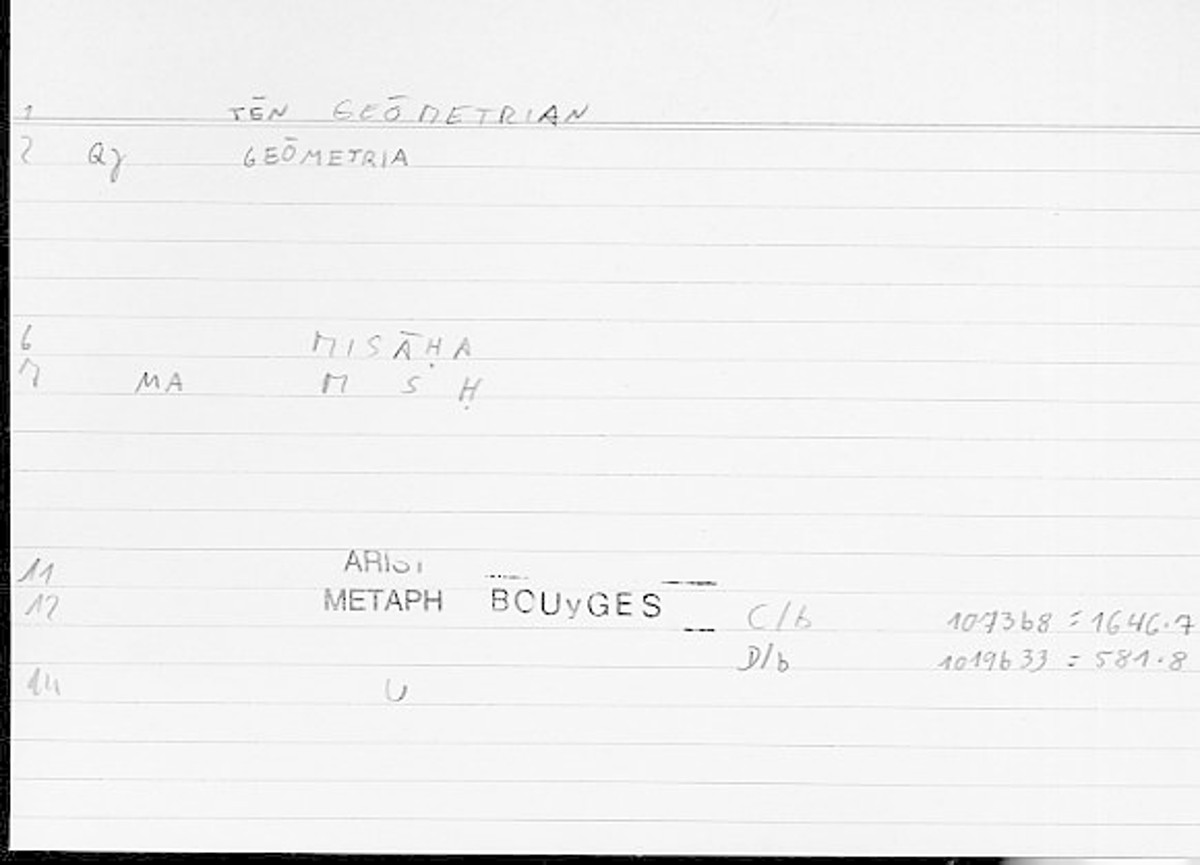 1 TĒN GEŌMETRIAN
2 Qγ GEŌMETRIA
6 MISĀḤA
7 MA M S Ḥ
11 ARIST
12 METAPH BOUyGES C/b 1073b8 = 1646.7
D/b 1019b33 = 581.8
14 U